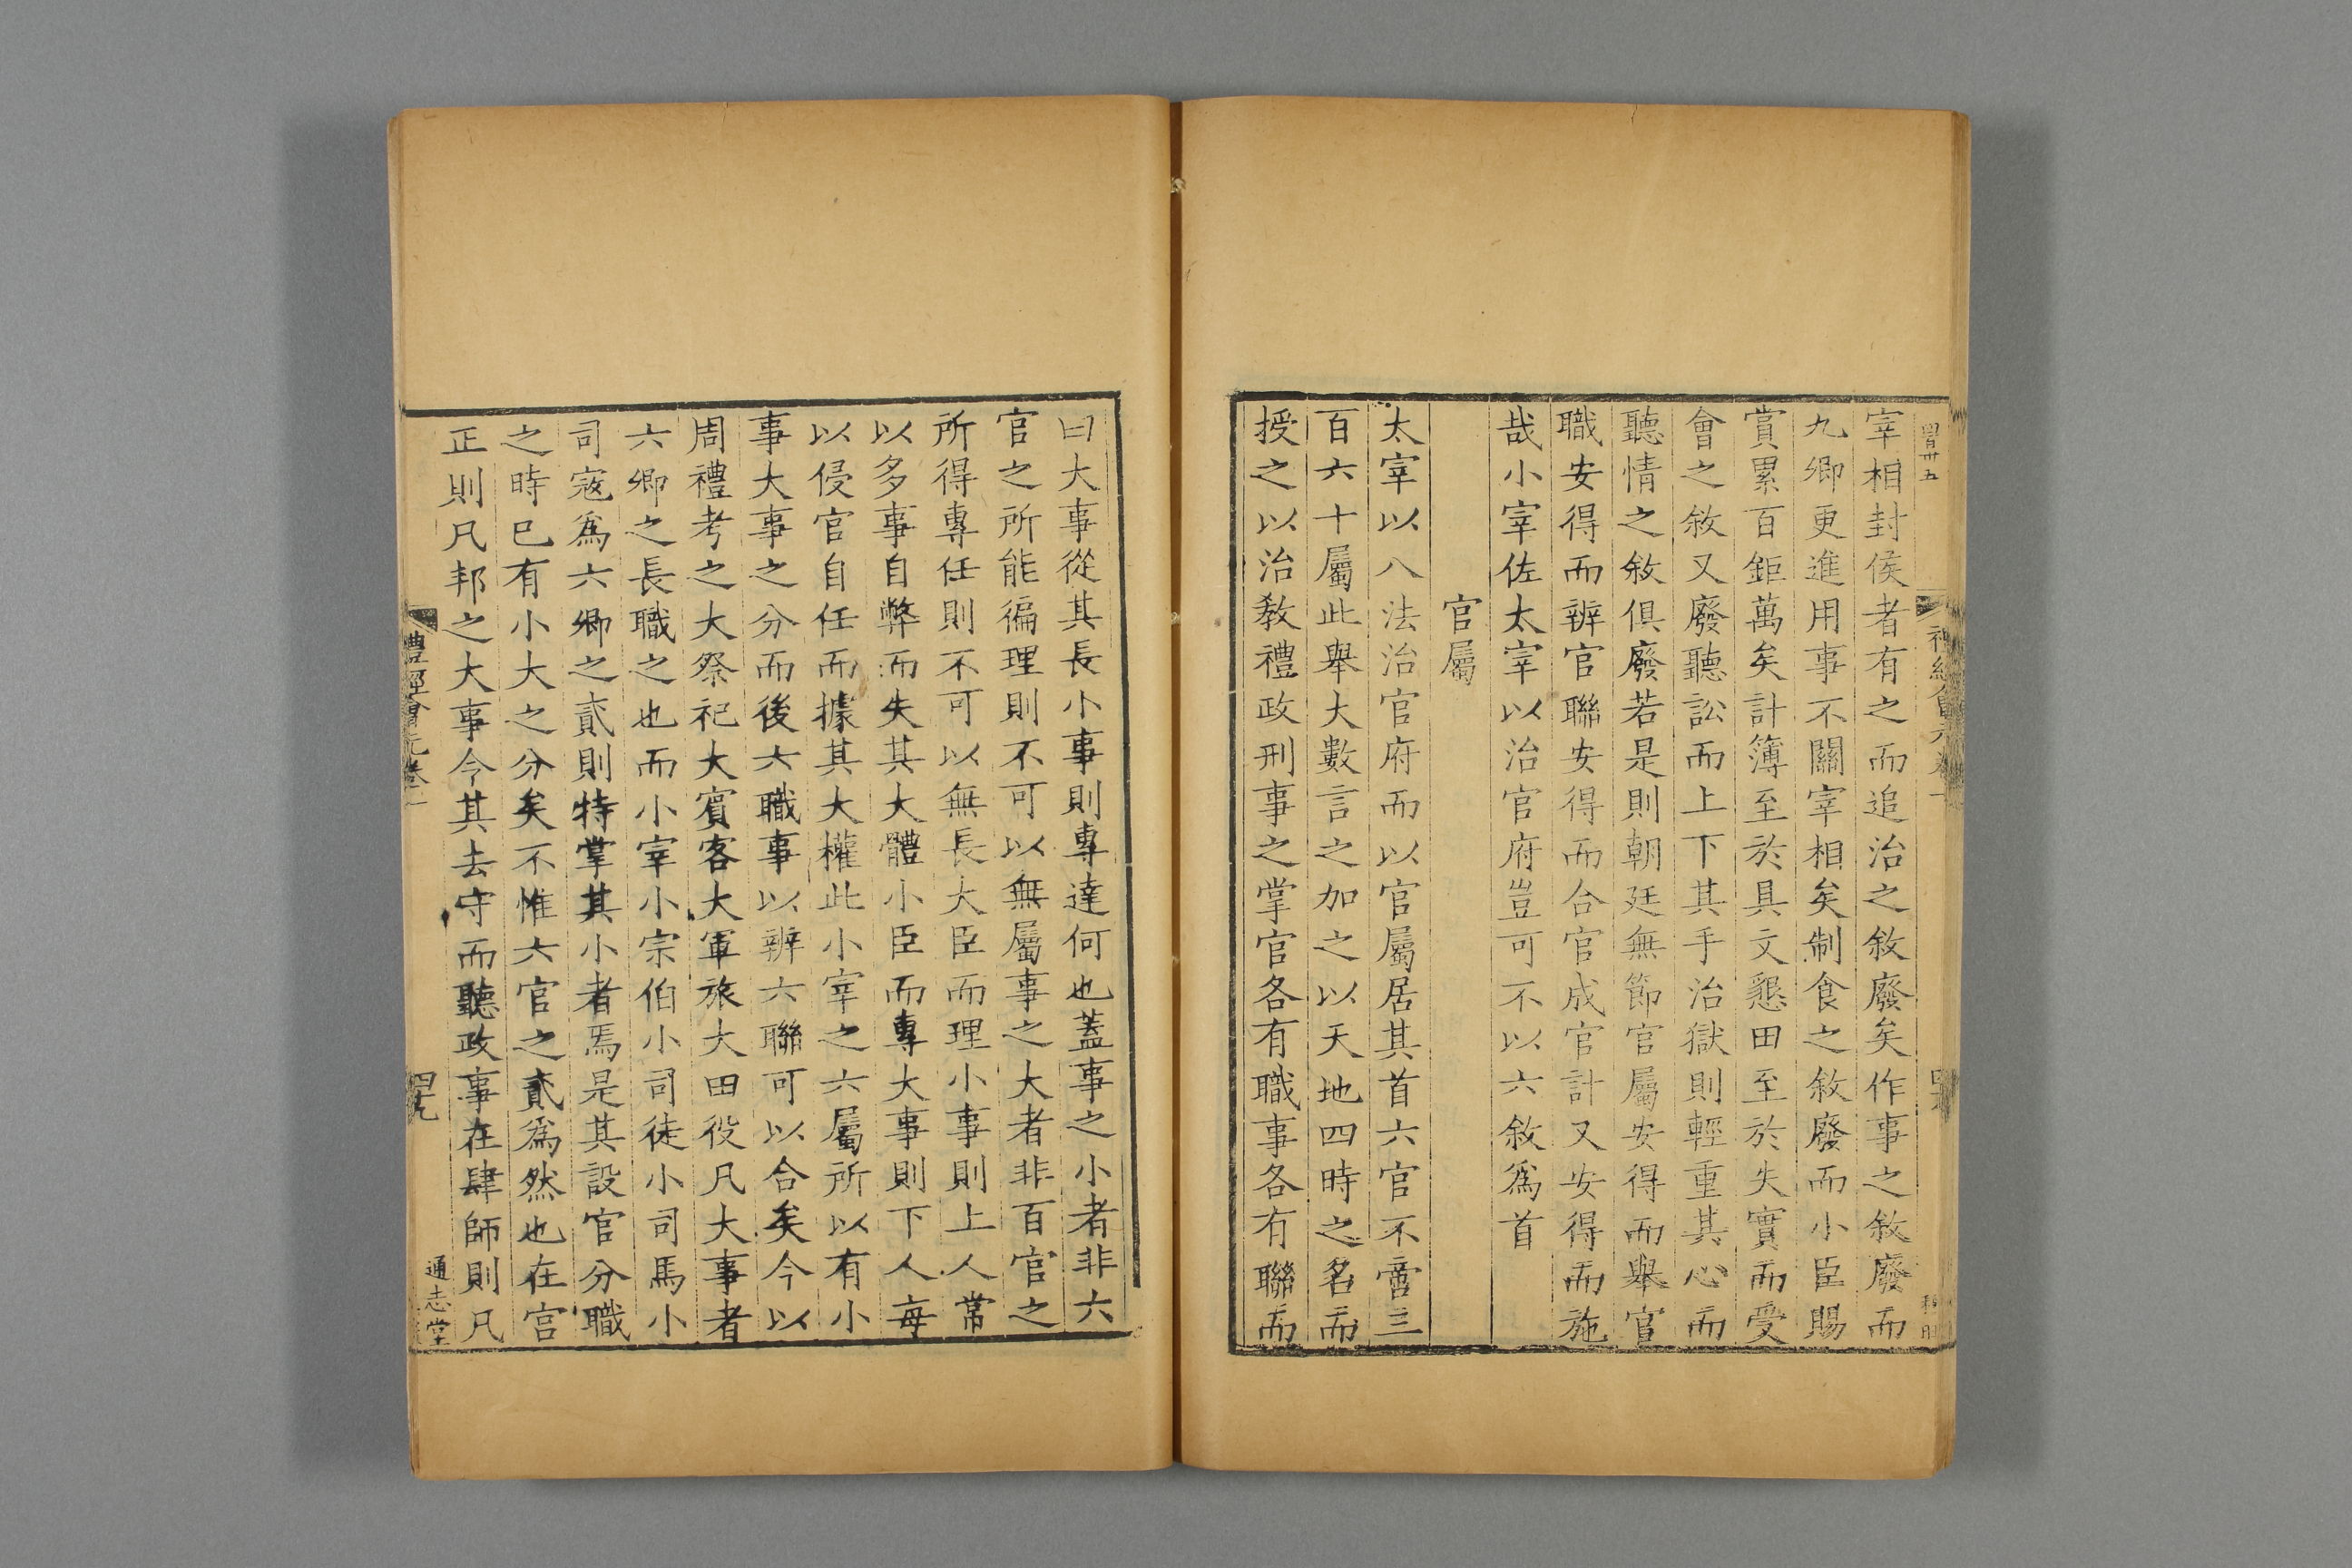 宰相封侯者有之而追治之敘廢矣作事之敘廢而
九卿更進用事不關宰相矣制食之敘廢而小臣賜
賞累百鉅萬矣計簿至於具文懇田至於失實而受
會之敘又廢聽訟而上下其手治獄則輕重其心而
聽情之敘俱廢若是則朝廷無節官屬安得而舉官
職安得而辨官聯安得而合官成官計又安得而施
哉小宰佐太宰以治官府豈可不以六敘爲首
官屬
太宰以八法治官府而以官屬居其首六官不啻三
百六十屬此舉大數言之加之以天地四時之名而
授之以治教禮政刑事之掌官各有職事各有聯而
曰大事從其長小事則專達何也蓋事之小者非六
官之所能徧理則不可以無屬事之大者非百官之
所得專任則不可以無長大臣而理小事則上人常
以多事自弊而失其大體小臣而專大事則下人每
以侵官自任而據其大權此小宰之六屬所以有小
事大事之分而後六職事以辨六聯可以合矣今以
周禮考之大祭祀大賓客大軍旅大田役凡大事者
六卿之長職之也而小宰小宗伯小司徒小司馬小
司寇爲六卿之貳則特掌其小者焉是其設官分職
之時已有小大之分矣不惟六官之貳爲然也在宫
正則凡邦之大事令其去守而聽政事在肆師則凡
禮經會元卷一
四十九
通志堂